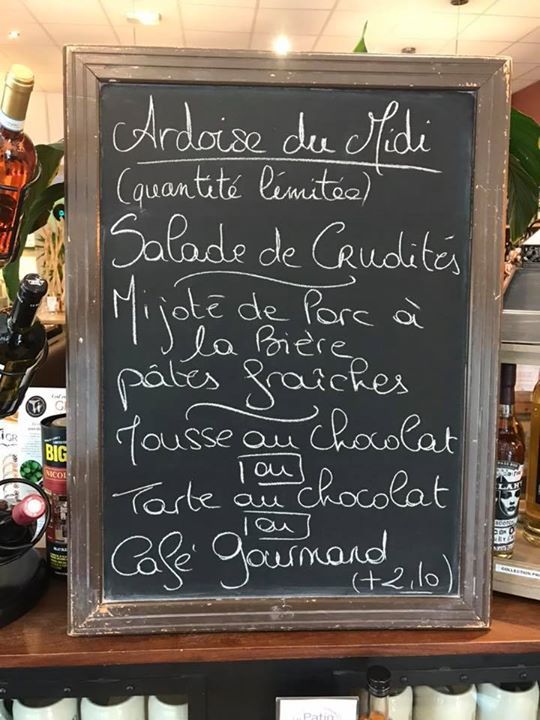 Ardoise du Midi
(quantité limitée)
Salade de Crudités
Mijoté de Porc à
la Bière
pâtes fraîches
Mousse au Chocolat
ou
Tarte au chocolat
ou
Café Gourmand
(+2,10)
BIG
COLLECTION
Patio